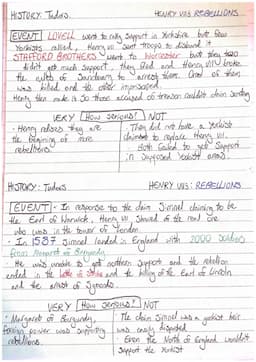 HISTORY: Tudors HENRY VII'S REBELLIONS
EVENT LOVELL went to rally support in Yorkshire but few
Yorkists rallied, Henry VII sent troops to disband it
STAFFORD BROTHERS went to Worcester but they too
didn't get much support, they fled and Henry VII broke
the of Sanctuary to arrest them. One of them
was killed and the other imprisoned.
Henry then made it so those accused of treason couldn't claim sanctuary
VERY How serious? NOT
- Henry realises they are
the beginning of more
rebellions.
- They did not have a Yorkist
claimant to replace Henry VII.
- Both failed to get support
in supposed Yorkist areas.
HISTORY: Tudors HENRY VII'S REBELLIONS
EVENT - In response to the claim Simnel claiming to be
the Earl of Warwick, Henry VII showed of the real one
who was in the tower of London.
- In 1587 Simnel landed in England with 2000 Soldiers
from Margaret of Burgundy
- He was unable to get northern support and the rebellion
ended in the Battle of Stoke and the killing of the Earl of Lincoln
and the arrest of Symonds.
VERY How serious? NOT
- Margaret of Burgundy,
foreign power was supporting
rebellions.
- The claim Simnel was a yorkist heir
was easily disputed
- Even the North of England wouldn't
Support the Yorkist